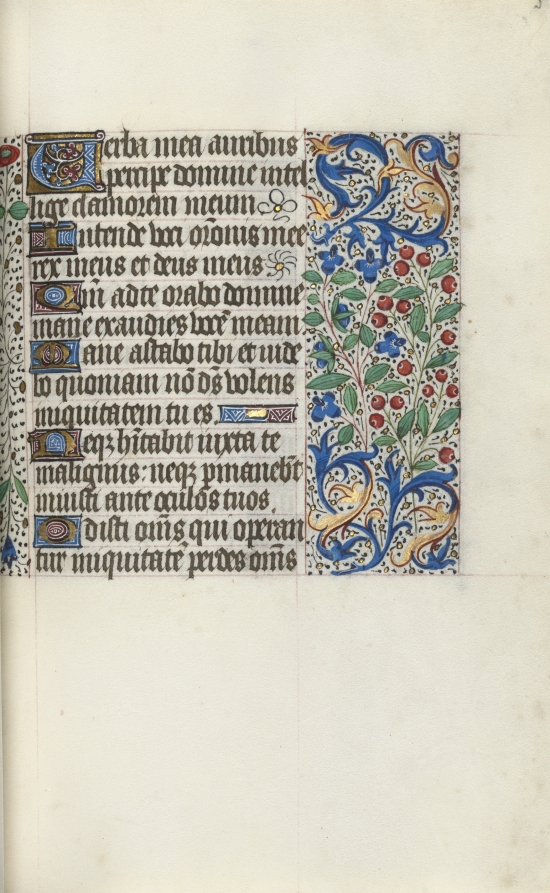 Verba mea auribus
percipe domine intel
lige clamorem meum
Intende voci orōnis mee
rex meus et deus meus
Qm̄ ad te orabo domine
mane exaudies vocē meam
Mane astabo tibi et vide
bo quoniam nō ds̄ volens
iniquitatem tu es
Neqꝫ hītabit iuxta te
malignus: neqꝫ ꝑmanebūt
iniusti ante oculos tuos
Odisti om̄s qui operan
tur iniquitatē perdes om̄s